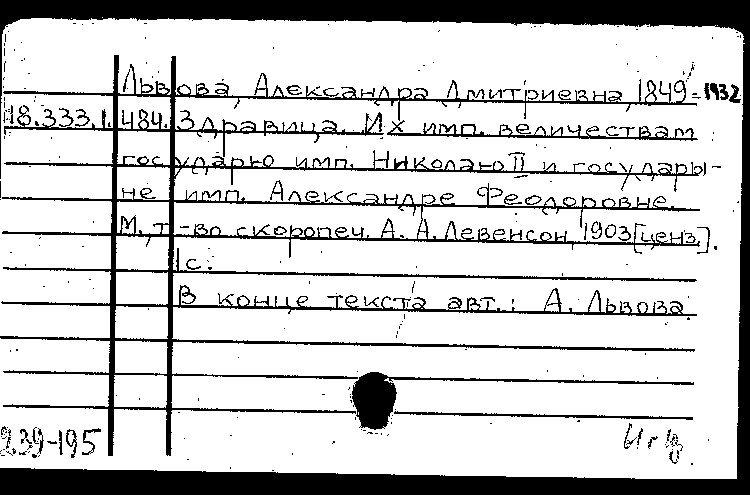 Львова, Александра Дмитриевна, 1849-1932
18.333.1.484. Здравица. Их имп. величествам
государю имп. Николаю II и государы-
не имп. Александре Феодоровне.
М., т-во скоропеч. А. А. Левенсон, 1903 [ценз.].
1с.
В конце текста авт.: А. Львова.
239-195